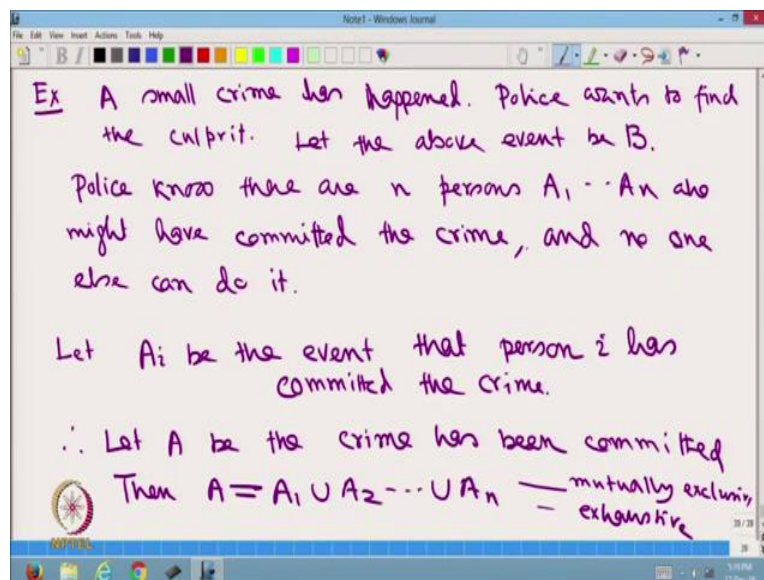 Note1 - Windows Journal
File Edit View Insert Actions Tools Help
Ex A small crime has happened. Police wants to find
the culprit. Let the above event be B.
Police know there are n persons A1 ·· An who
might have committed the crime, and no one
else can do it.
Let Ai be the event that person i has
committed the crime.
∴ Let A be the crime has been committed
Then A = A1 ∪ A2 --- ∪ An — mutually exclusive,
— exhaustive
NPTEL
39